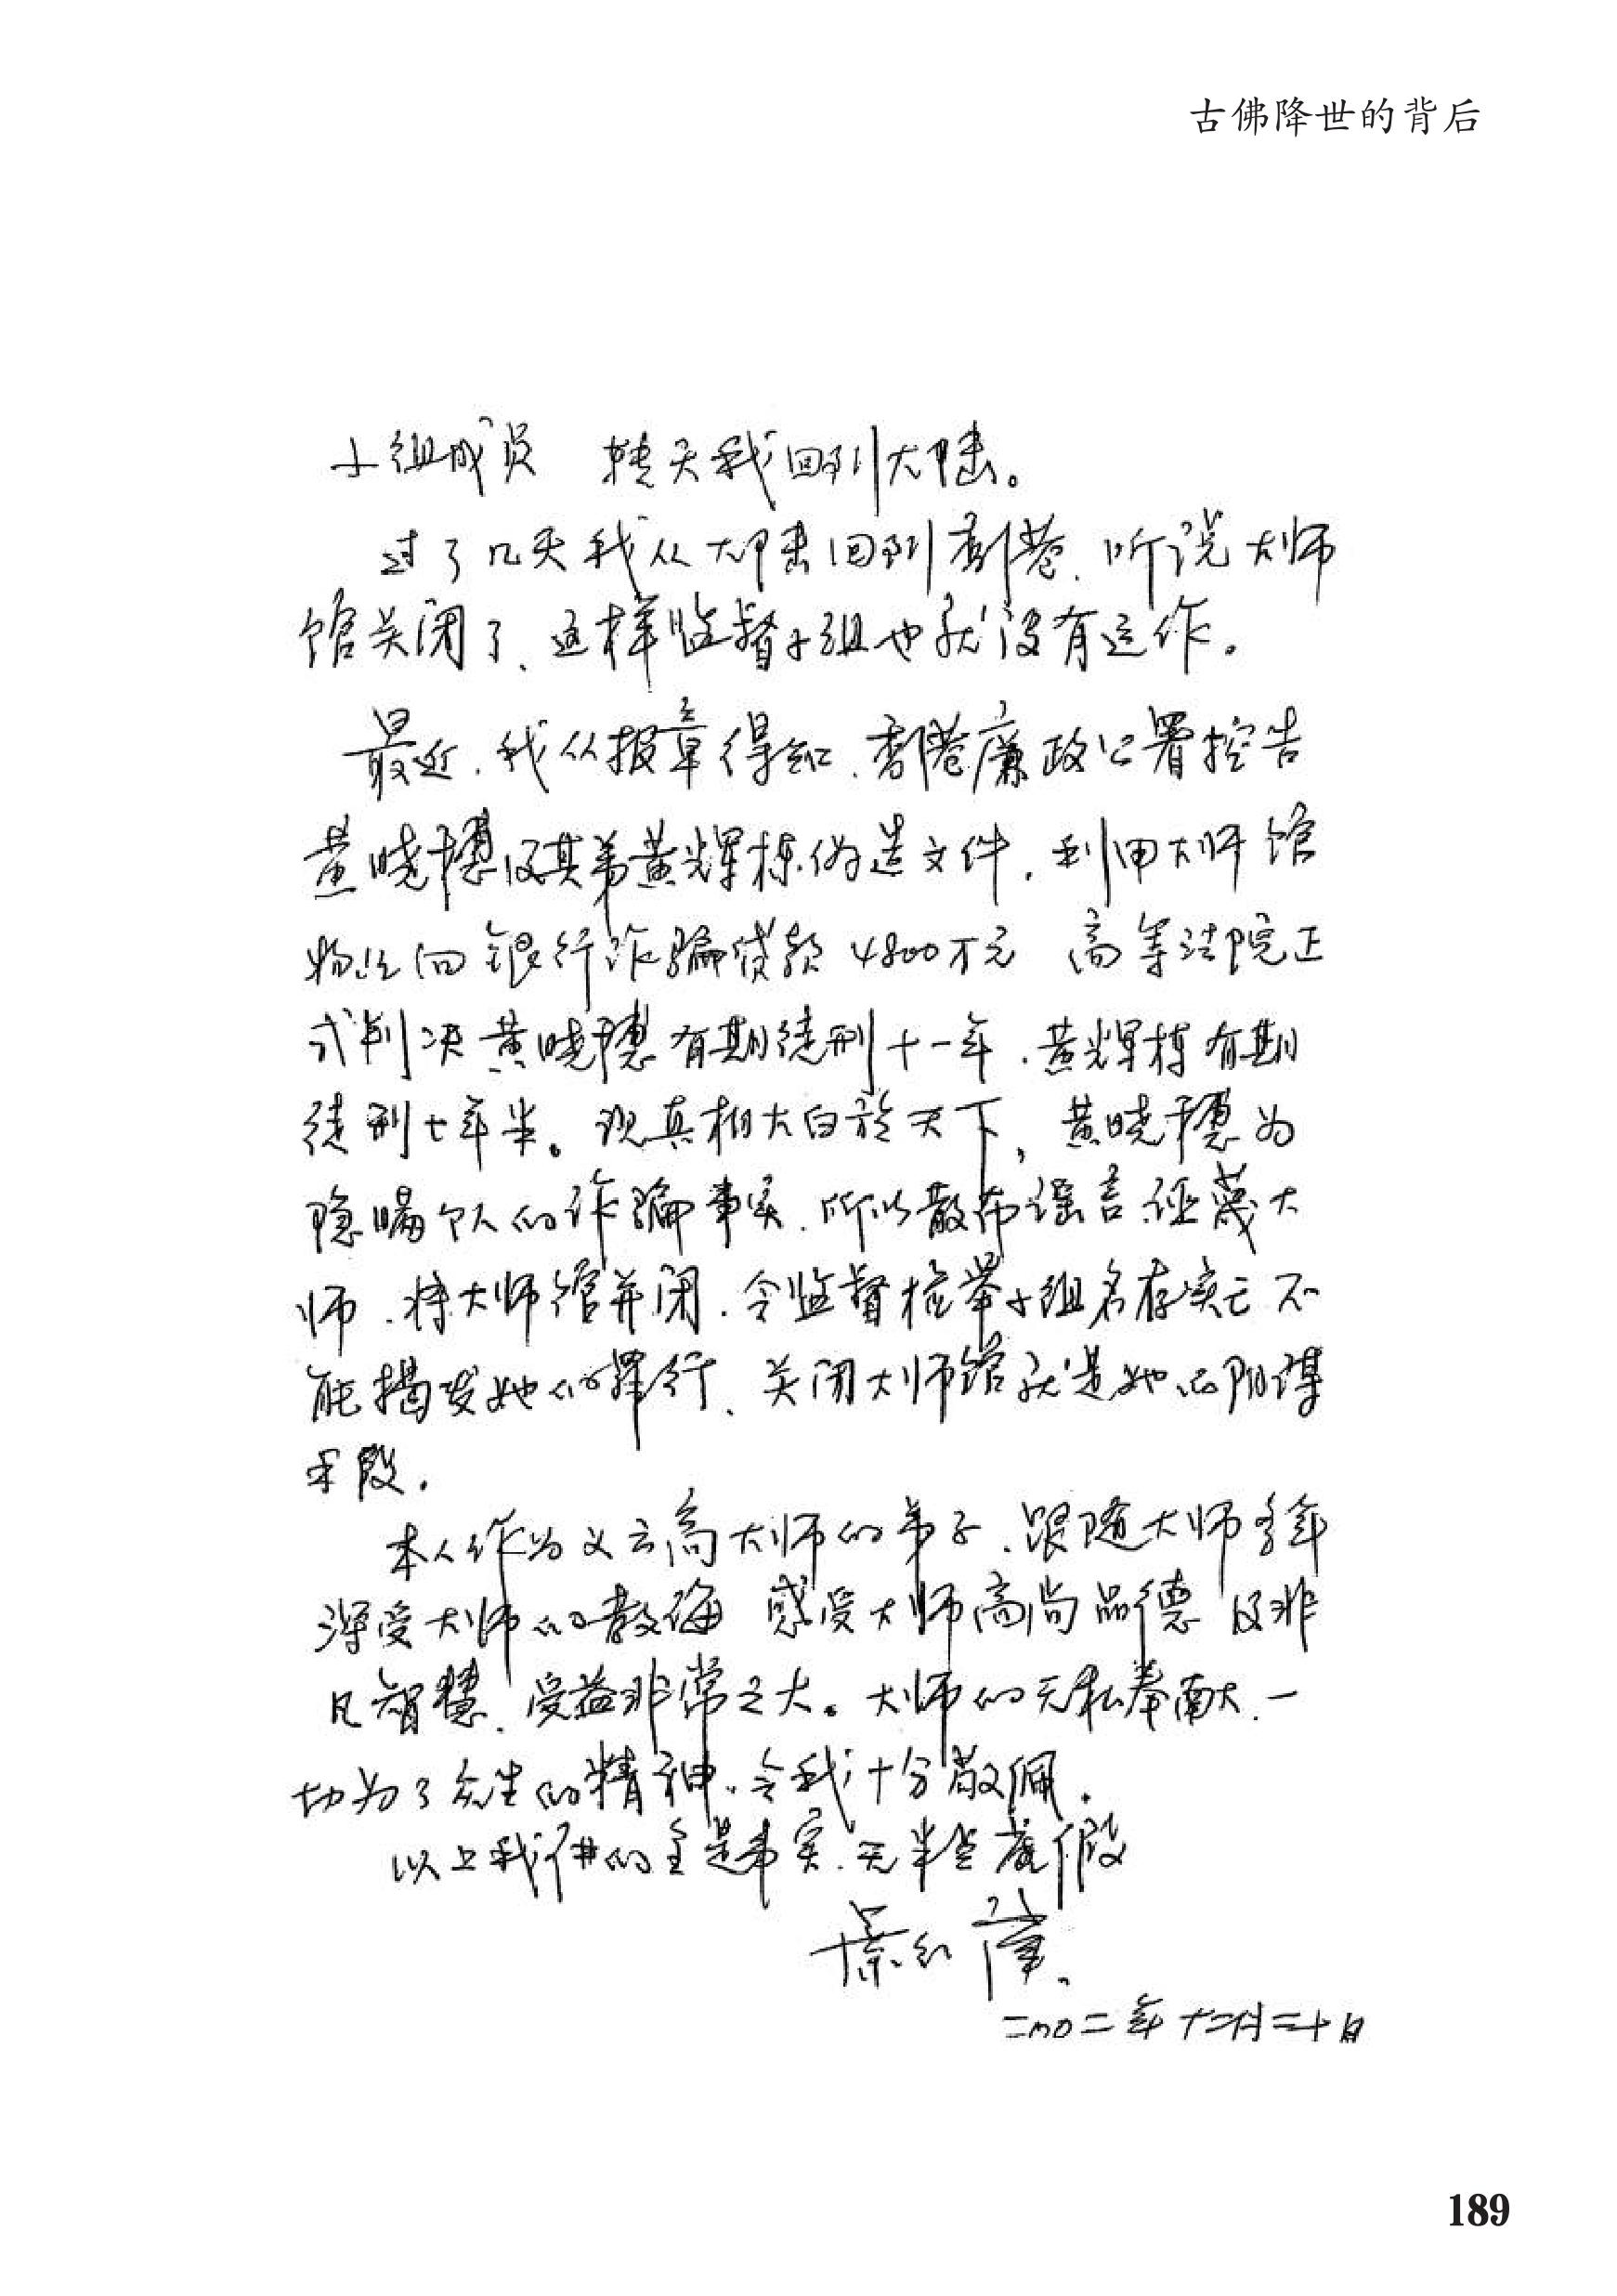 古佛降世的背后
小组成员 转天我回到大陆。
过了几天我从大陆回到香港、听说大师
馆关闭了、这样监督小组也就没有运作。
最近、我从报章得知、香港廉政公署控告
黄晓穗及其弟黄辉栋伪造文件，利用大师馆
物业向银行诈骗贷款4800万元 高等法院正
式判决黄晓穗有期徒刑十一年、黄辉栋有期
徒刑七年半。现真相大白於天下，黄晓穗为
隐瞒个人的诈骗事实、所以散布谣言诬蔑大
师、将大师馆并闭、令监督检举小组名存实亡不
能揭发她的罪行、关闭大师馆就是她的阴谋
手段.
本人作为义云高大师的弟子、跟随大师多年
深受大师的教诲 感受大师高尚品德 及非
凡智慧、受益非常之大。大师的无私奉献、一
切为了众生的精神、令我十分敬佩.
以上我讲的全是事实、无半点虚假
二〇〇二年十二月三十日
189